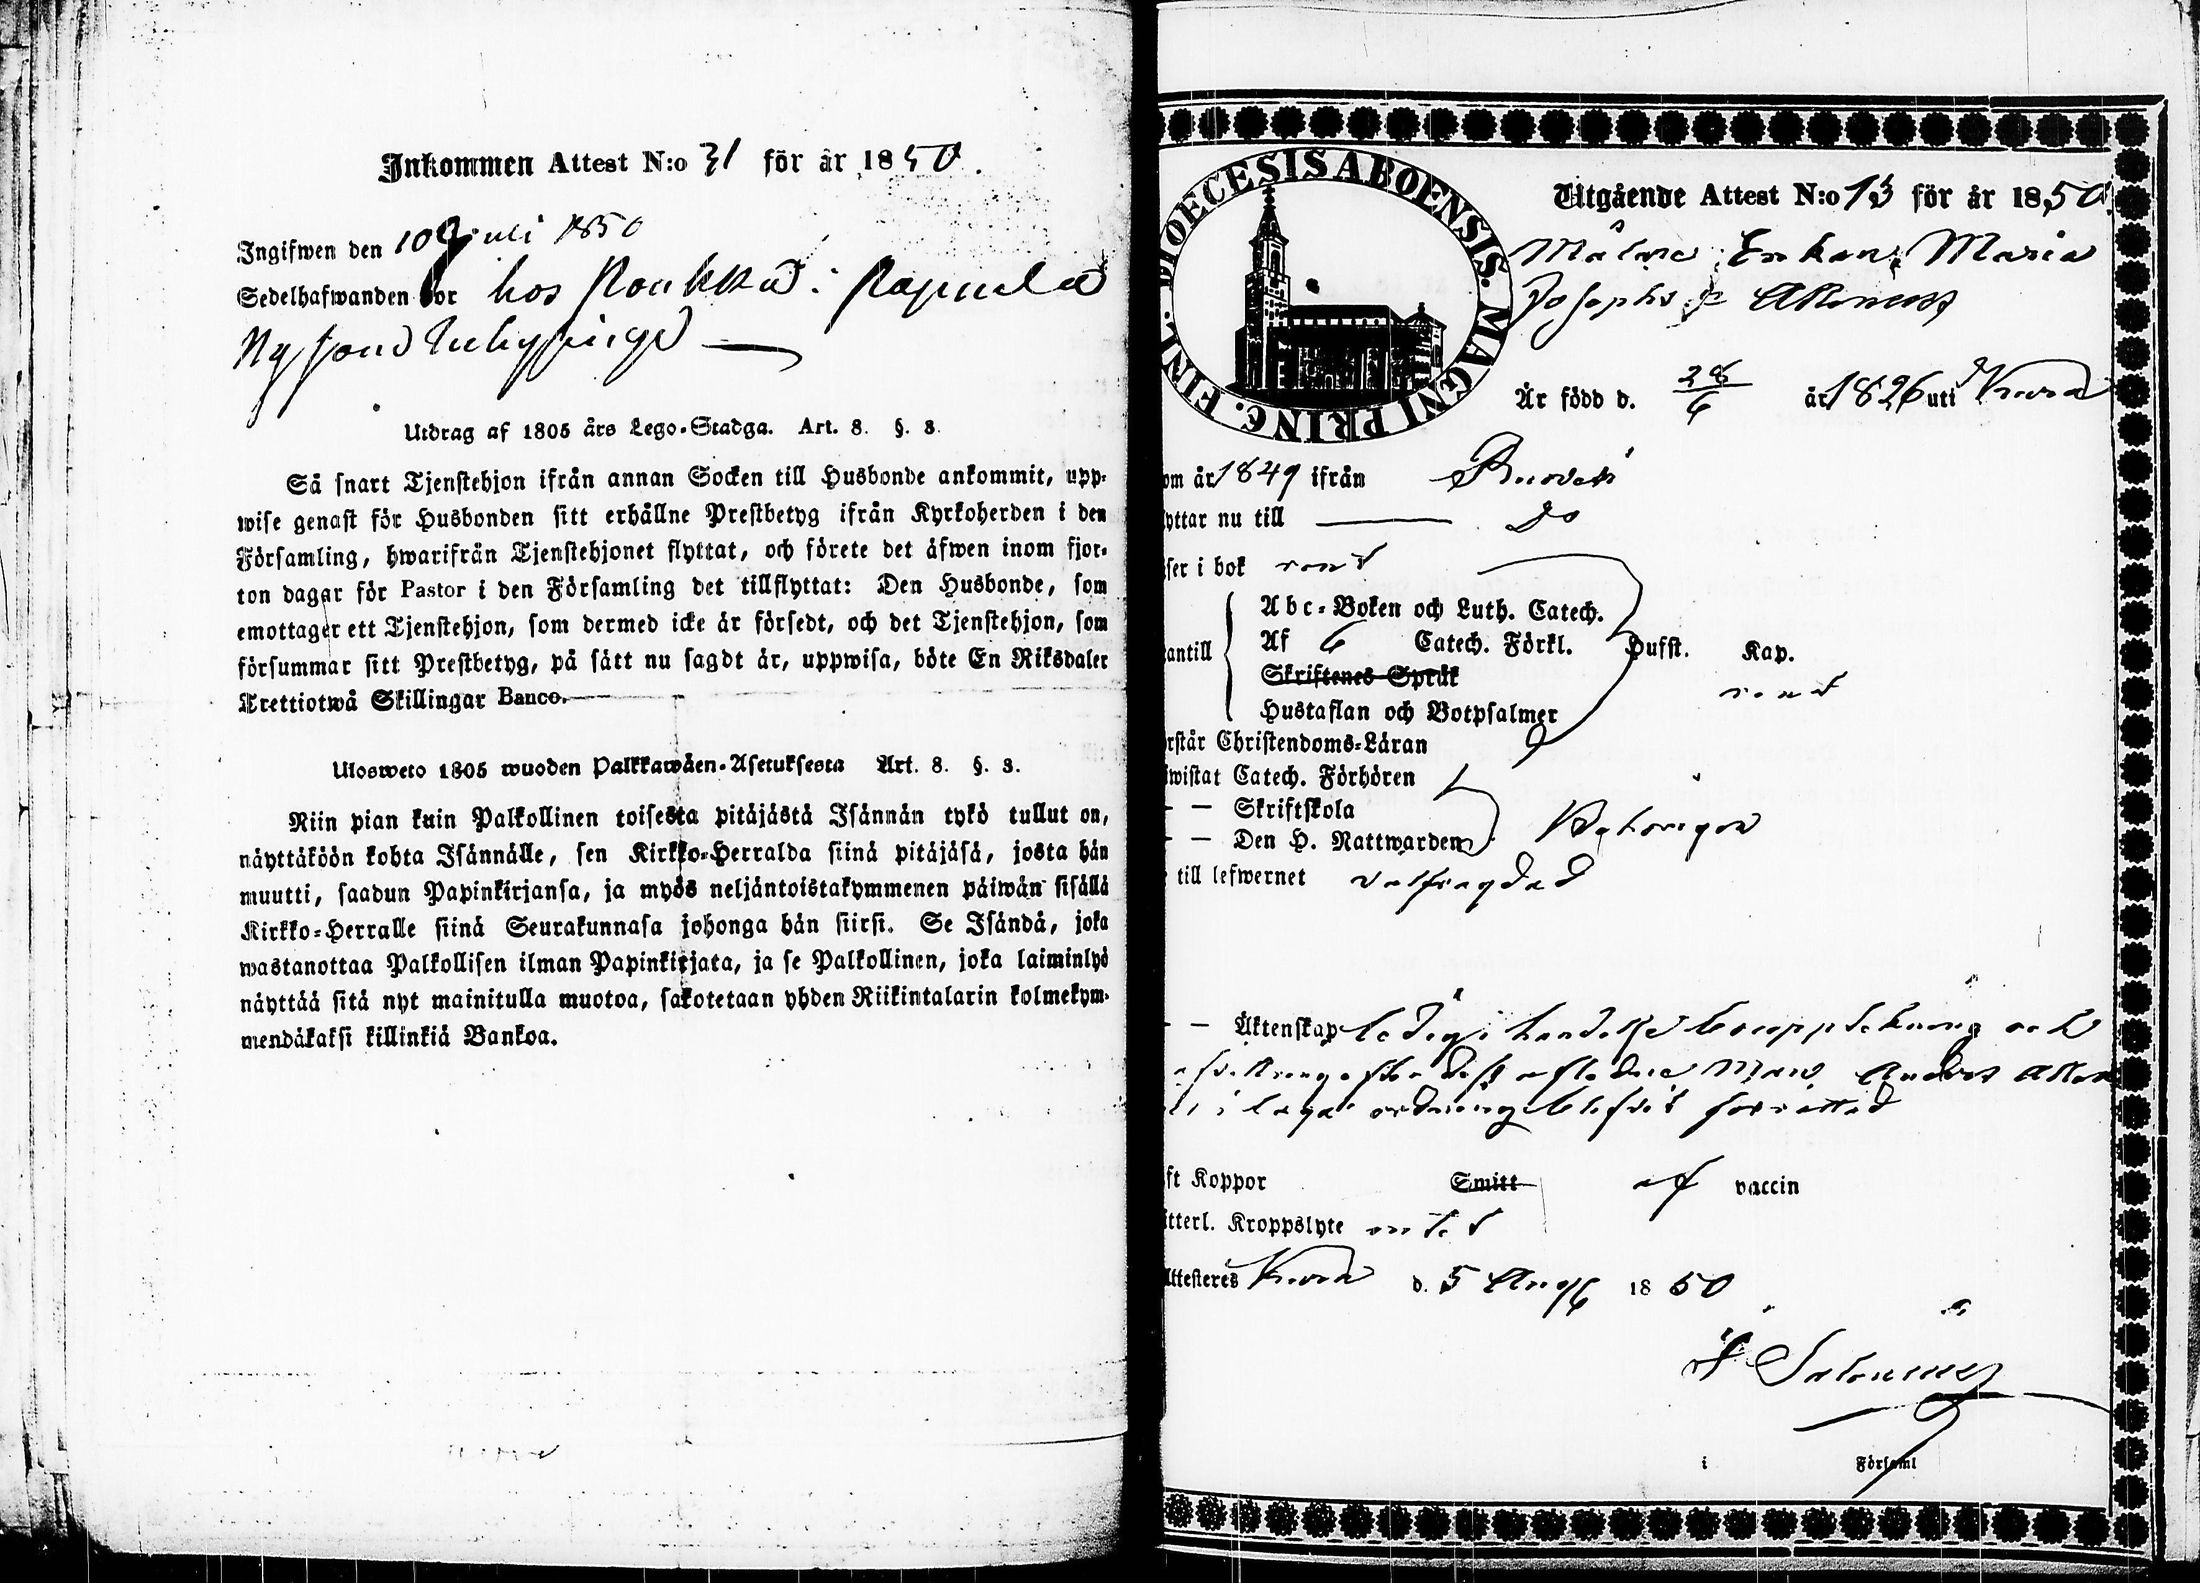 Inkommen Attest N:o 31 för år 1850.
Ingifwen den 10 Juli 1850
Sedelhafwanden bor hos Koukku i Rapula
Utdrag af 1805 års Lego-Stadga. Art. 8. §. 3.
Så snart Tjenstehjon ifrån annan Socken till Husbonde ankommit, upp-
wise genast för Husbonden sitt erhållne Prestbetyg ifrån Kyrkoherden i den
Församling, hwarifrån Tjenstehjonet flyttat, och förete det äfwen inom fjor-
ton dagar för Pastor i den Församling det tillflyttat: Den Husbonde, som
emottager ett Tjenstehjon, som dermed icke är försedt, och det Tjenstehjon, som
försummar sitt Prestbetyg, på sätt nu sagdt är, uppwisa, böte En Riksdaler
Trettiotwå Skillingar Banco.
Ulosweto 1805 wuoden Palkkawäen-Asetuksesta Art. 8. §. 3.
Niin pian kuin Palkollinen toisesta pitäjästä Isännän tykö tullut on,
näyttäköön kohta Isännälle, sen Kirkko-Herralda siinä pitäjäsä, josta hän
muutti, saadun Papinkirjansa, ja myös neljäntoistakymmenen päiwän sisällä
Kirkko-Herralle siinä Seurakunnasa johonga hän siirsi. Se Isändä, joka
wastanottaa Palkollisen ilman Papinkirjata, ja se Palkollinen, joka laiminlyö
näyttää sitä nyt mainitulla muotoa, sakotetaan yhden Riikintalarin kolmekym-
mendäkaksi killinkiä Bankoa.
DIOECESIS ABOENSIS. MAGNI PRINC. FINL.
Utgående Attest N:o 13 för år 1850
Enkan Maria
Är född d. 28/6 år 1826 uti Kura
om år 1849 ifrån Ruovesi
lyttar nu till — Do
äser i bok rent
antill
Abc-Boken och Luth. Catech.
Af 6 Catech. Förkl. Hufst. Kap.
Skriftenes Språk
rent
Hustaflan och Botpsalmer
rstår Christendoms-Läran
iwistat Catech. Förhören
— — Skriftskola
— — Den H. Nattwarden
till lefwernet välfrägdad
— — Äktenskap ledig
i laga ordning blifvit förrättad
ft Koppor Smitt af vaccin
itterl. Kroppslyte intet
Attesteres Kura d. 5 Aug 1850
i Församl